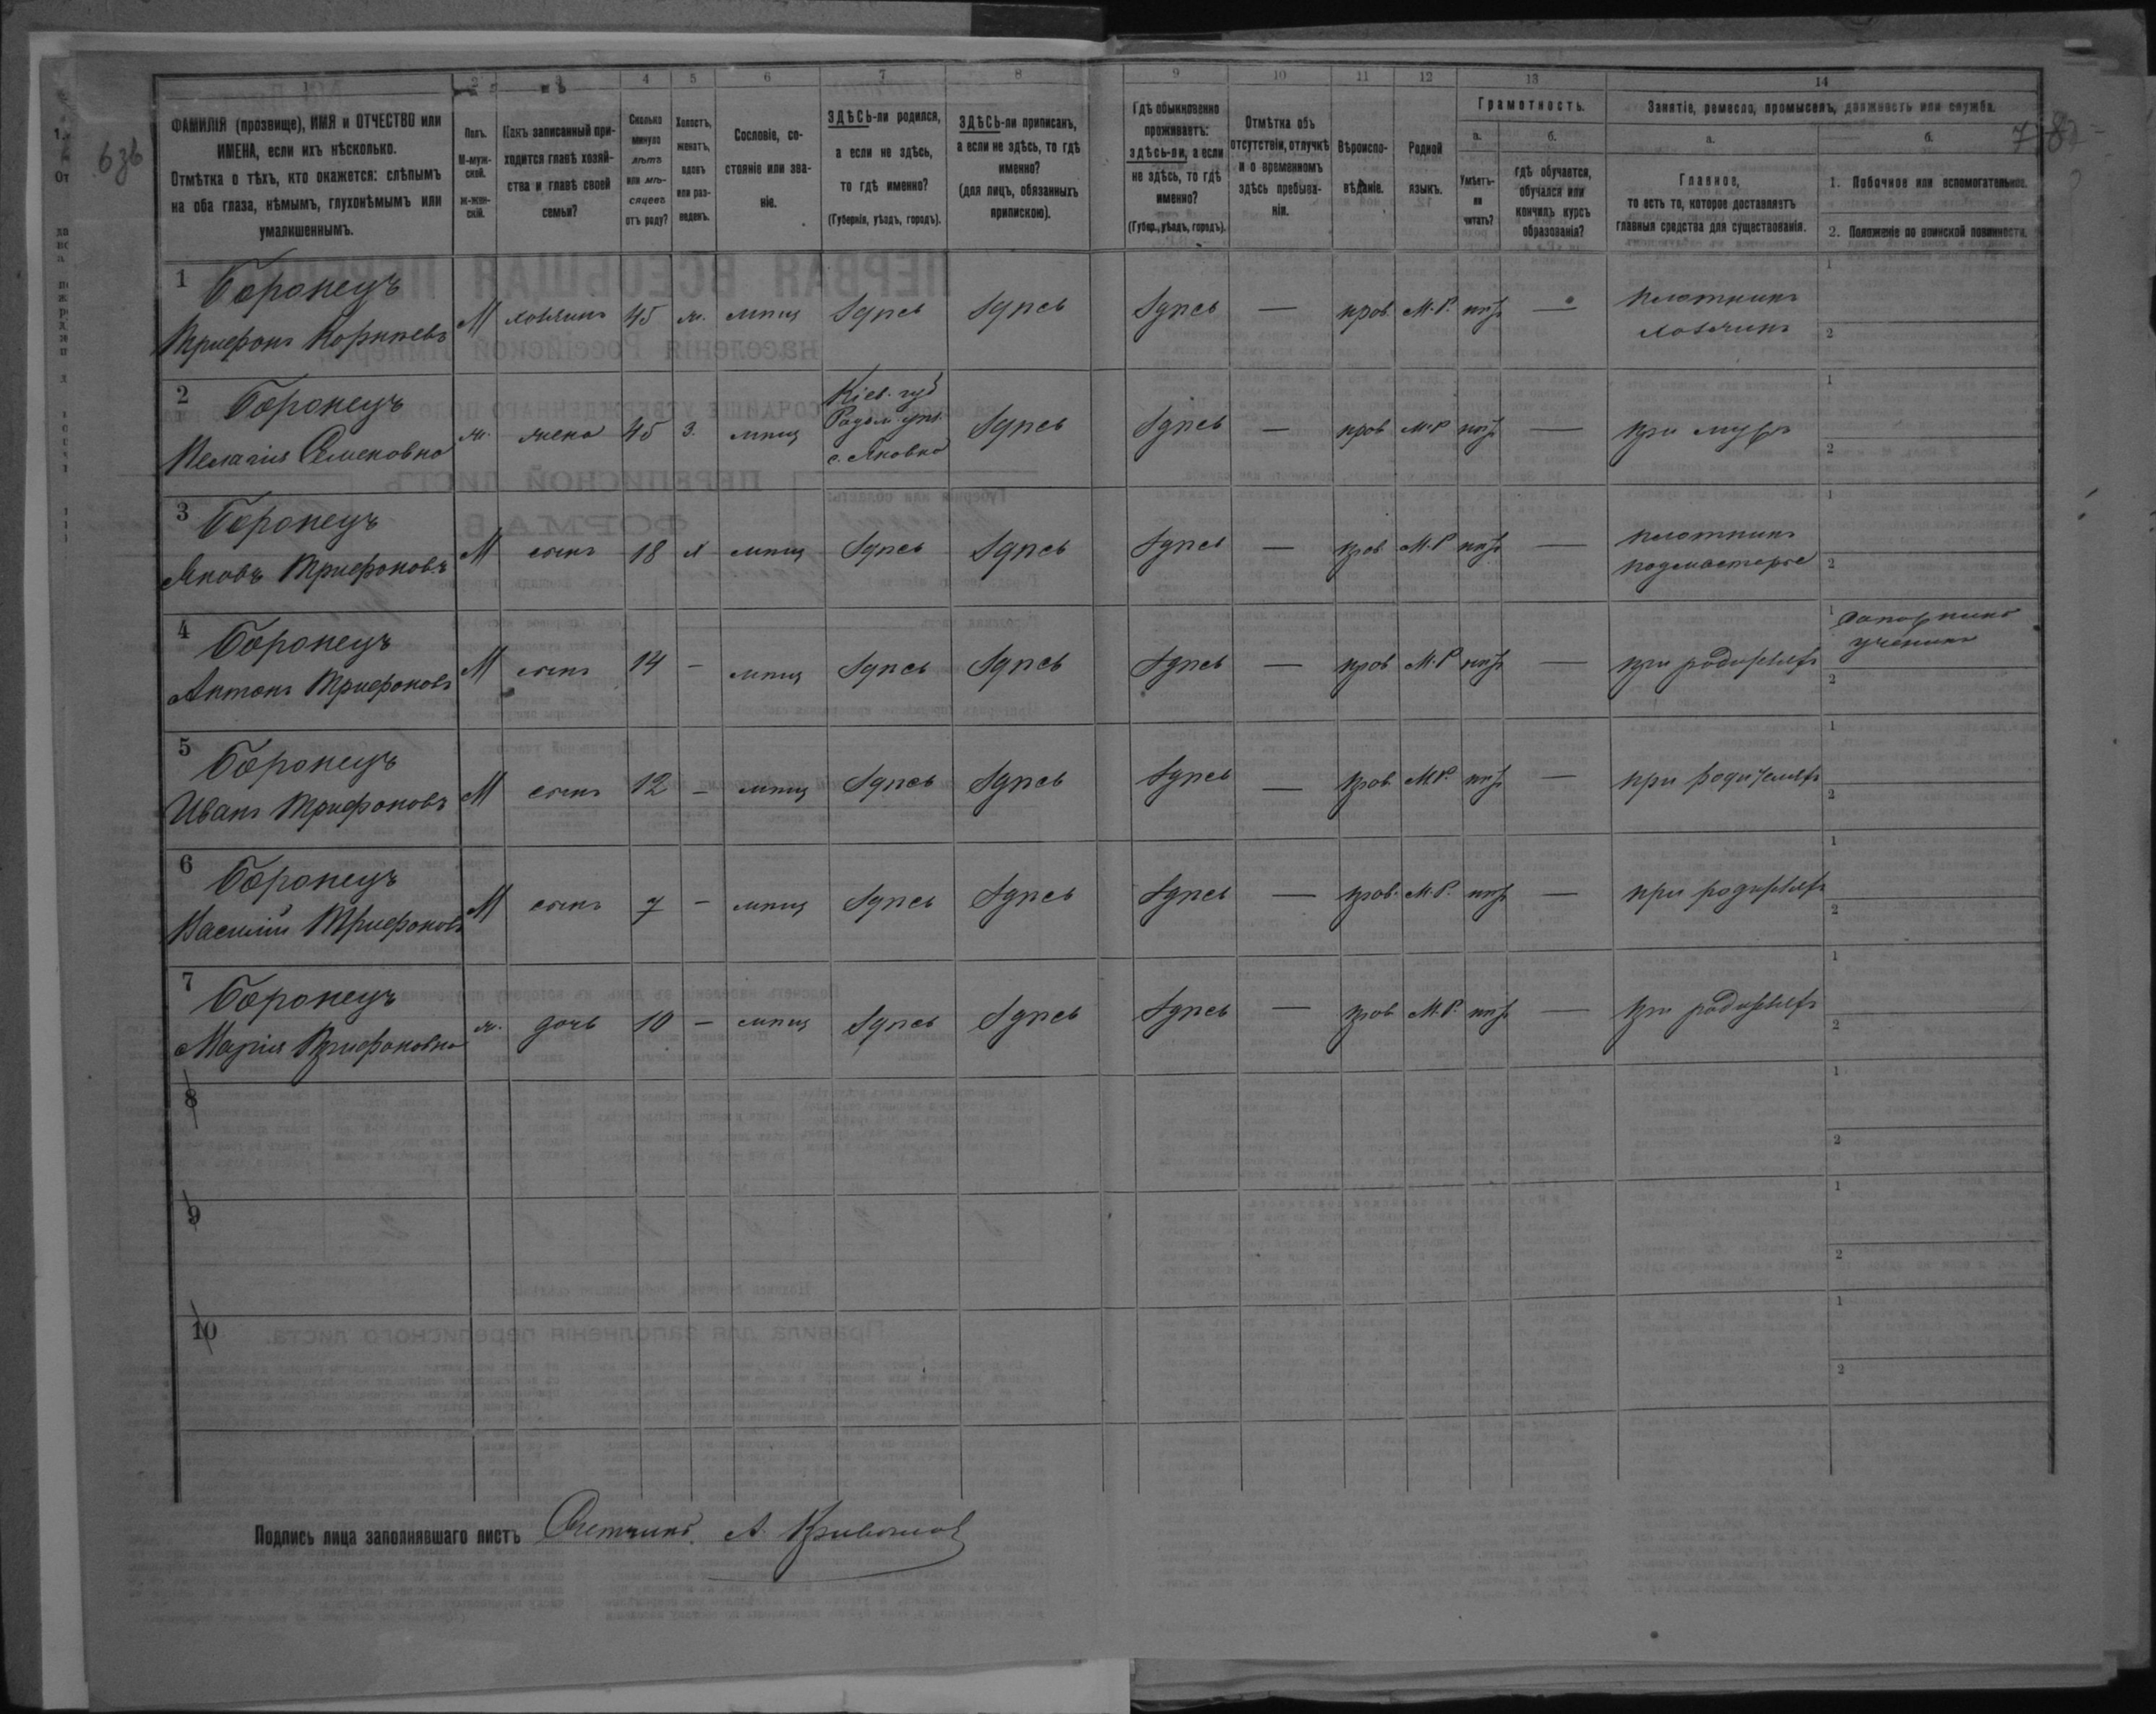 1 2 3 4 5 6 7 8 9 10 11 12 13 14
ФАМИЛІЯ (прозвище), ИМЯ и ОТЧЕСТВО или
ИМЕНА, если ихъ нѣсколько.
Отмѣтка о тѣхъ, кто окажется: слѣпымъ
на оба глаза, нѣмымъ, глухонѣмымъ или
умалишеннымъ.
Полъ.
М-муж-
ской.
ж-жен-
скій.
Какъ записанный при-
ходится главѣ хозяй-
ства и главѣ своей
семьи?
Сколько
минуло
лѣтъ
или мѣ-
сяцевъ
отъ роду?
Холостъ,
женатъ,
вдовъ
или раз-
веденъ.
Сословіе, со-
стояніе или зва-
ніе.
ЗДѢСЬ-ли родился,
а если не здѣсь,
то гдѣ именно?
(Губернія, уѣздъ, городъ).
ЗДѢСЬ-ли приписанъ,
а если не здѣсь, то гдѣ
именно?
(для лицъ, обязанныхъ
припискою).
Гдѣ обыкновенно
проживаетъ:
здѣсь-ли, а если
не здѣсь, то гдѣ
именно?
(Губер., уѣздъ, городъ).
Отмѣтка объ
отсутствіи, отлучкѣ
и о временномъ
здѣсь пребыва-
ніи.
Вѣроиспо-
вѣданіе.
Родной
языкъ.
Грамотность.
а.
Умѣетъ-
ли
читать?
б.
гдѣ обучается,
обучался или
кончилъ курсъ
образованія?
Занятіе, ремесло, промыселъ, должность или служба.
а.
Главное,
то есть то, которое доставляетъ
главныя средства для существованія.
б.
1. Побочное или вспомогательное.
2. Положеніе по воинской повинности.
63б
1 Боронецъ
Трифонъ Корнѣевъ М хозяинъ 45 ж. мѣщ здѣсь здѣсь здѣсь — прав. М.Р. нѣтъ — плотникъ
хозяинъ
2 Боронецъ
Пелагія Семеновна ж. жена 45 з. мѣщ Кіев. губ
Радом. уѣз.
с. Яновка здѣсь здѣсь — прав М.Р нѣтъ — при мужѣ
3 Боронецъ
Яковъ Трифоновъ М сынъ 18 х мѣщ здѣсь здѣсь здѣсь — прав М.Р нѣтъ — плотникъ
подмастерье
4 Боронецъ
Антонъ Трифоновъ М сынъ 14 — мѣщ здѣсь здѣсь здѣсь — прав М.Р нѣтъ — при родителяхъ 1 сапожникъ
ученикъ
5 Боронецъ
Иванъ Трифоновъ М сынъ 12 — мѣщ здѣсь здѣсь здѣсь — прав М.Р. нѣтъ — при родителяхъ
6 Боронецъ
Василій Трифоновъ М сынъ 7 — мѣщ здѣсь здѣсь здѣсь — прав. М.Р. нѣтъ — при родителяхъ
7 Боронецъ
Марія Трифоновна ж. дочь 10 — мѣщ здѣсь здѣсь здѣсь — прав М.Р. нѣтъ — при родителяхъ
8
9
10
Подпись лица заполнявшаго листъ Счетчикъ А.